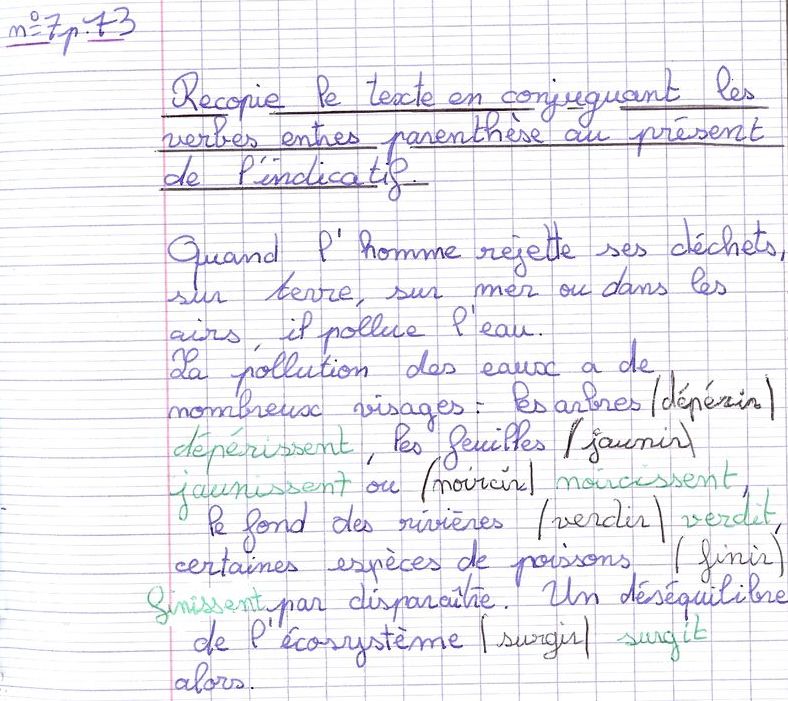 n°7 p.73
Recopie le texte en conjuguant les
verbes entres parenthèse au présent
de l'indicatif.
Quand l'homme rejette ses déchets,
sur terre, sur mer ou dans les
airs, il pollue l'eau.
La pollution des eaux a de
nombreux visages : les arbres (dépérir)
dépérissent, les feuilles (jaunir)
jaunissent ou (noircir) noircissent,
le fond des rivières (verdir) verdit,
certaines espèces de poissons (finir)
finissent par disparaître. Un déséquilibre
de l'écosystème (surgir) surgit
alors.